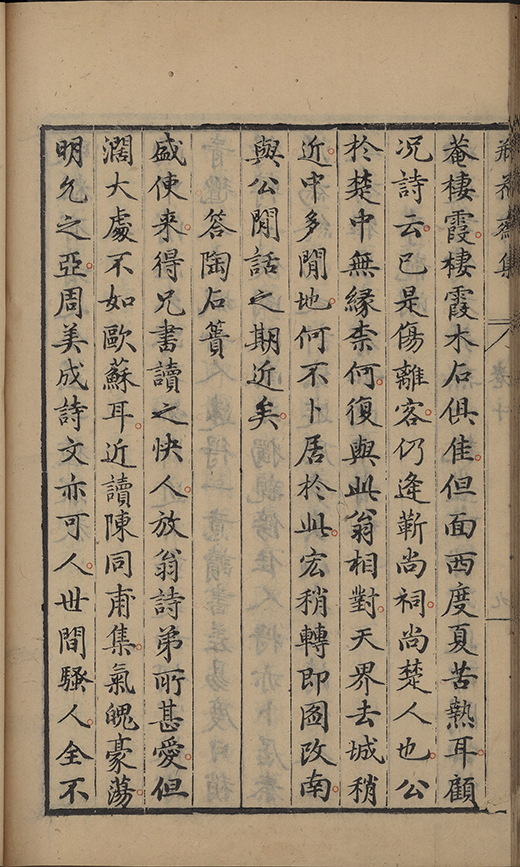 菴棲霞棲霞木石俱佳但面西度夏苦熱耳顧
况詩云巳是傷離客仍逢靳尚祠尚楚人也公
於楚中無緣柰何復與此翁相對天界去城稍
近中多閒地何不卜居於此宏稍轉即圖改南
與公閒話之期近矣
答陶石簣
盛使来得兄書讀之快人放翁詩弟所甚愛但
濶大處不如歐蘇耳近讀陳同甫集氣魄豪蕩
明允之亞周美成詩文亦可人世間騷人全不